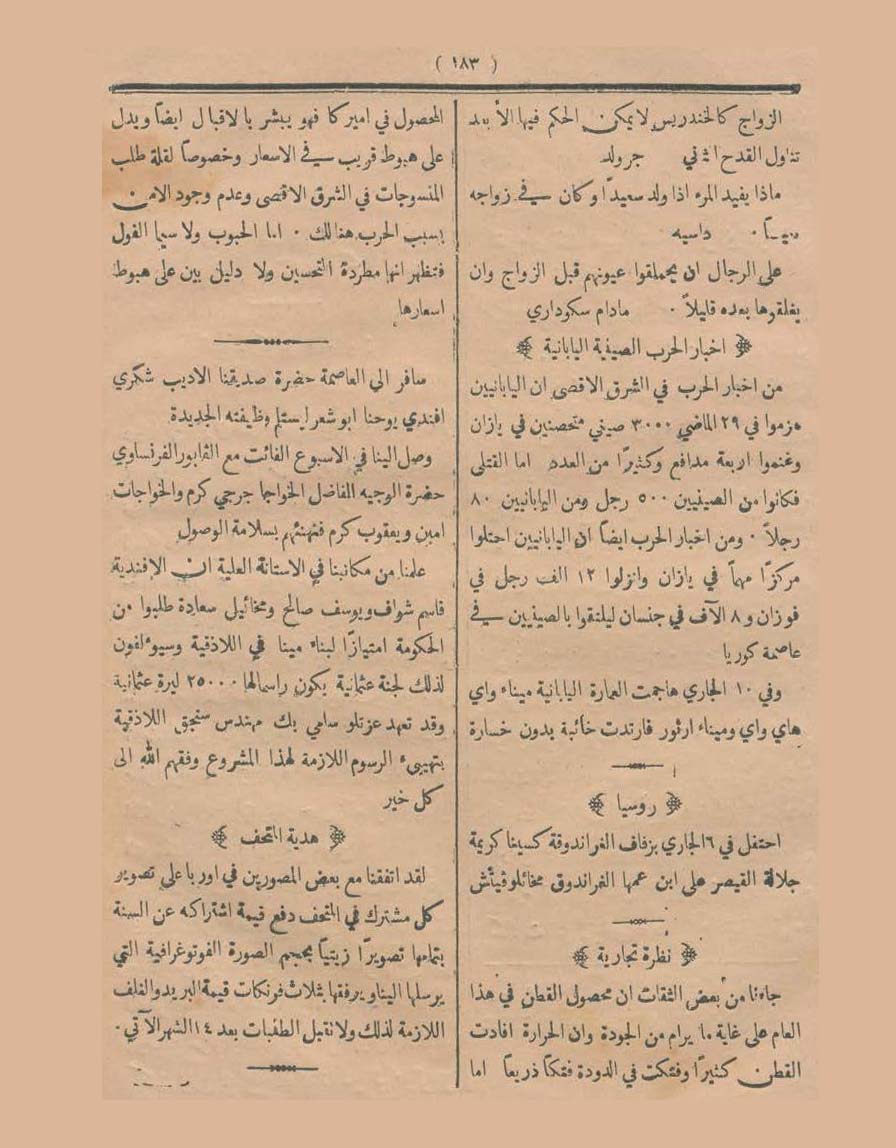 ( ١٨٣ )
الزواج كالخندريس لا يمكن الحكم فيها الا بعد
تناول القدح الثاني جرولد
ماذا يفيد المرء اذا ولد سعيدًا وكان في زواجه
داسيه
على الرجال ان يحملقوا عيونهم قبل الزواج وان
يغلقوها بعده قليلاً ٠ مادام سكوداري
﴿ اخبار الحرب الصينية اليابانية ﴾
من اخبار الحرب في الشرق الاقصى ان اليابانيين
هزموا في ٢٩ الماضي ٣٠٠٠ صيني متحصنين في يازان
وغنموا اربعة مدافع وكثيرًا من العدد اما القتلى
فكانوا من الصينيين ٥٠٠ رجل ومن اليابانيين ٨٠
رجلاً ٠ ومن اخبار الحرب ايضاً ان اليابانيين احتلوا
مركزًا مهماً في يازان وانزلوا ١٢ الف رجل في
فوزان و ٨ الآف في جنسان ليلتقوا بالصينيين في
عاصمة كوريا
وفي ١٠ الجاري هاجمت العمارة اليابانية ميناء واي
هاي واي وميناء ارثور فارتدت خائبة بدون خسارة
﴿ روسيا ﴾
احتفل في ٦ الجاري بزفاف الغراندوقة كسينا كريمة
جلالة القيصر على ابن عمها الغراندوق مخائلوفيتش
﴿ نظرة تجارية ﴾
جاءنا من بعض الثقات ان محصول القطن في هذا
العام على غاية ما يرام من الجودة وان الحرارة افادت
القطن كثيرًا وفتكت في الدودة فتكاً ذريعاً اما
المحصول في اميركا فهو يبشر بالاقبال ايضاً ويدل
على هبوط قريب في الاسعار وخصوصاً لقلة طلب
المنسوجات في الشرق الاقصى وعدم وجود الامن
بسبب الحرب هنالك ٠ اما الحبوب ولا سيما الفول
فتظهر انها مطردة التحسين ولا دليل بين على هبوط
اسعارها
سافر الى العاصمة حضرة صديقنا الاديب شكري
افندي يوحنا ابو شعر ليستلم وظيفته الجديدة
وصل الينا في الاسبوع الفائت مع الڤابور الفرنساوي
حضرة الوجيه الفاضل الخواجا جرجي كرم والخواجات
امين ويعقوب كرم فنهنئهم بسلامة الوصول
علمنا من مكاتبنا في الاستانة العلية ان الافندية
قاسم شواف ويوسف صالح ومخائيل سعادة طلبوا من
الحكومة امتيازًا لبناء مينا في اللاذقية وسيؤلفون
لذلك لجنة عثمانية يكون راسمالها ٢٥٠٠٠ ليرة عثمانية
وقد تعهد عزتلو سامي بك مهندس سنجق اللاذقية
بتهييء الرسوم اللازمة لهذا المشروع وفقهم الله الى
كل خير
﴿ هدية المتحف ﴾
لقد اتفقنا مع بعض المصورين في اوربا على تصوير
كل مشترك في المتحف دفع قيمة اشتراكه عن السنة
بتمامها تصويرًا زيتياً بحجم الصورة الفوتوغرافية التي
يرسلها الينا ويرفقها بثلاث فرنكات قيمة البريد والغلف
اللازمة لذلك ولا نقبل الطلبات بعد ١٤ الشهر الآتي ٠